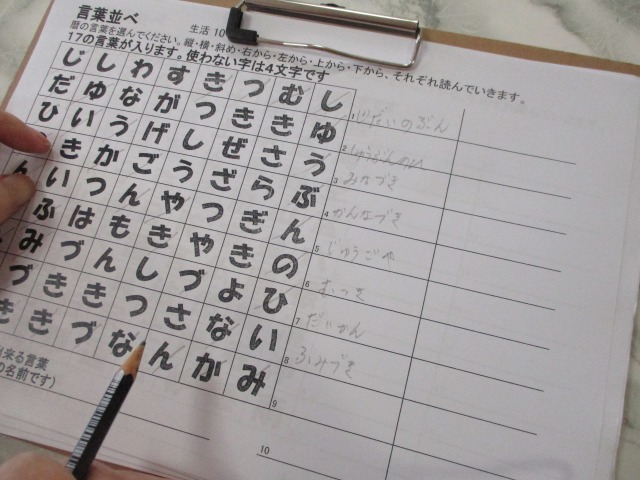 言葉並べ
生活 10
暦の言葉を選んでください。縦・横・斜め・右から・左から・上から・下から、それぞれ読んでいきます。
17の言葉が入ります。使わない字は4文字です
じしわすきつむし
だゆながつききゆ
ひいうげしぜさう
きかごうざらぶ
んいつんやつぎん
ふはもきやきの
みづんしづよひ
づききつさない
ききづなんかみ
1
2 しゅうぶんのひ
3 みなづき
4 かんなづき
5 じゅうごや
6 むつき
7 だいかん
8 ふみづき
9
10
来る言葉
の名前です)